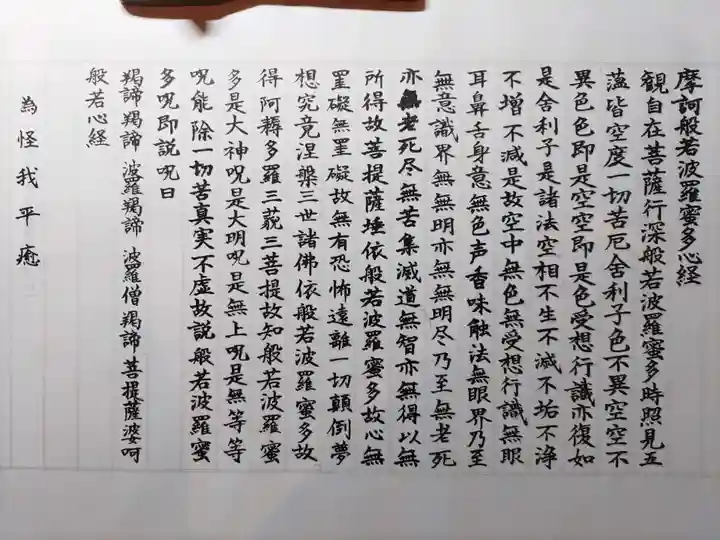 摩訶般若波羅蜜多心経
観自在菩薩行深般若波羅蜜多時照見五
薀皆空度一切苦厄舍利子色不異空空不
異色色即是空空即是色受想行識亦復如
是舎利子是諸法空相不生不滅不垢不浄
不増不減是故空中無色無受想行識無眼
耳鼻舌身意無色声香味触法無眼界乃至
無意識界無無明亦無無明尽乃至無老死
亦無老死尽無苦集滅道無智亦無得以無
所得故菩提薩埵依般若波羅蜜多故心無
罣礙無罣礙故無有恐怖遠離一切顛倒夢
想究竟涅槃三世諸佛依般若波羅蜜多故
得阿耨多羅三藐三菩提故知般若波羅蜜
多是大神呪是大明呪是無上呪是無等等
呪能除一切苦真実不虚故説般若波羅蜜
多呪即説呪曰
羯諦羯諦 波羅羯諦 波羅僧羯諦菩提薩婆呵
般若心経
為怪我平癒